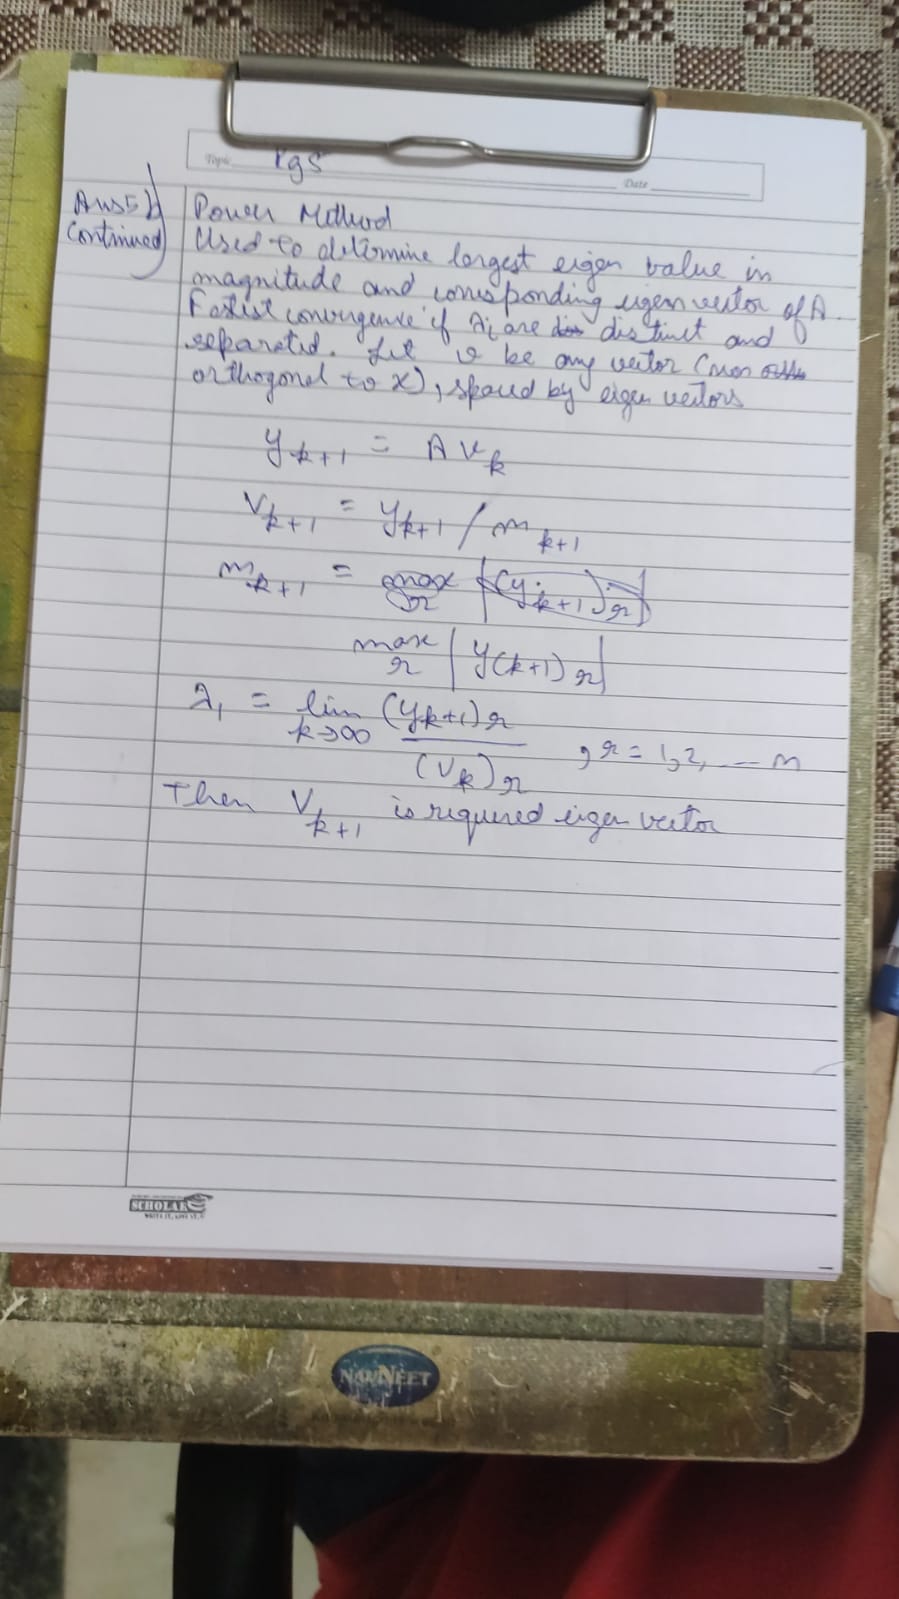 Topic Pg 5
Date
Ans 5 b)
Continued
Power Method
Used to determine largest eigen value in
magnitude and corresponding eigen vector of A.
Fastest convergence if λi are distinct and
separated. Let v be any vector (non
orthogonal to x), spaced by eigen vectors
y_{k+1} = A v_k
v_{k+1} = y_{k+1} / m_{k+1}
m_{k+1} = max_r |(y_{k+1})_r|
max_r |y(k+1)_r|
λ_1 = lim_{k→∞} (y_{k+1})_r / (v_k)_r , r = 1, 2, --- n
Then v_{k+1} is required eigen vector
SCHOLAR
NAVNEET